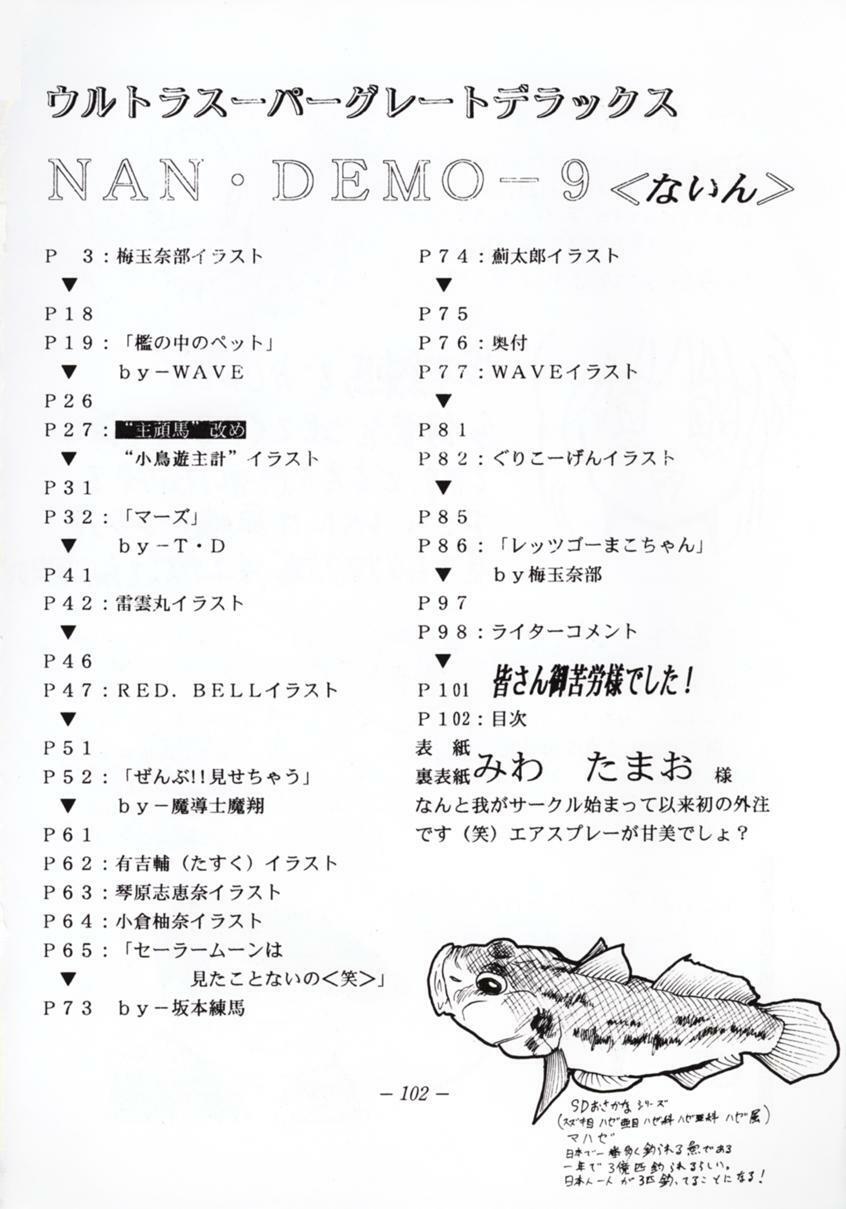 ウルトラスーパーグレートデラックス
NAN・DEMO－9＜ないん＞
P 3：梅玉奈部イラスト
▼
P18
P19：「檻の中のペット」
▼ by－WAVE
P26
P27：“主頑馬”改め
▼ “小鳥遊主計”イラスト
P31
P32：「マーズ」
▼ by－T・D
P41
P42：雷雲丸イラスト
▼
P46
P47：RED．BELLイラスト
▼
P51
P52：「ぜんぶ!!見せちゃう」
▼ by－魔導士魔翔
P61
P62：有吉輔（たすく）イラスト
P63：琴原志恵奈イラスト
P64：小倉柚奈イラスト
P65：「セーラームーンは
▼ 見たことないの＜笑＞」
P73 by－坂本練馬
P74：薊太郎イラスト
▼
P75
P76：奥付
P77：WAVEイラスト
▼
P81
P82：ぐりこーげんイラスト
▼
P85
P86：「レッツゴーまこちゃん」
▼ by梅玉奈部
P97
P98：ライターコメント
▼
P101 皆さん御苦労様でした！
P102：目次
表 紙
裏表紙 みわ たまお 様
なんと我がサークル始まって以来初の外注
です（笑）エアスプレーが甘美でしょ？
－102－
SDおさかなシリーズ
(スズキ目 ハゼ亜目 ハゼ科 ハゼ亜科 ハゼ属)
マハゼ
日本で一番多く釣られる魚である
一年で3億匹釣られるらしい。
日本人一人が3匹釣ってることになる！